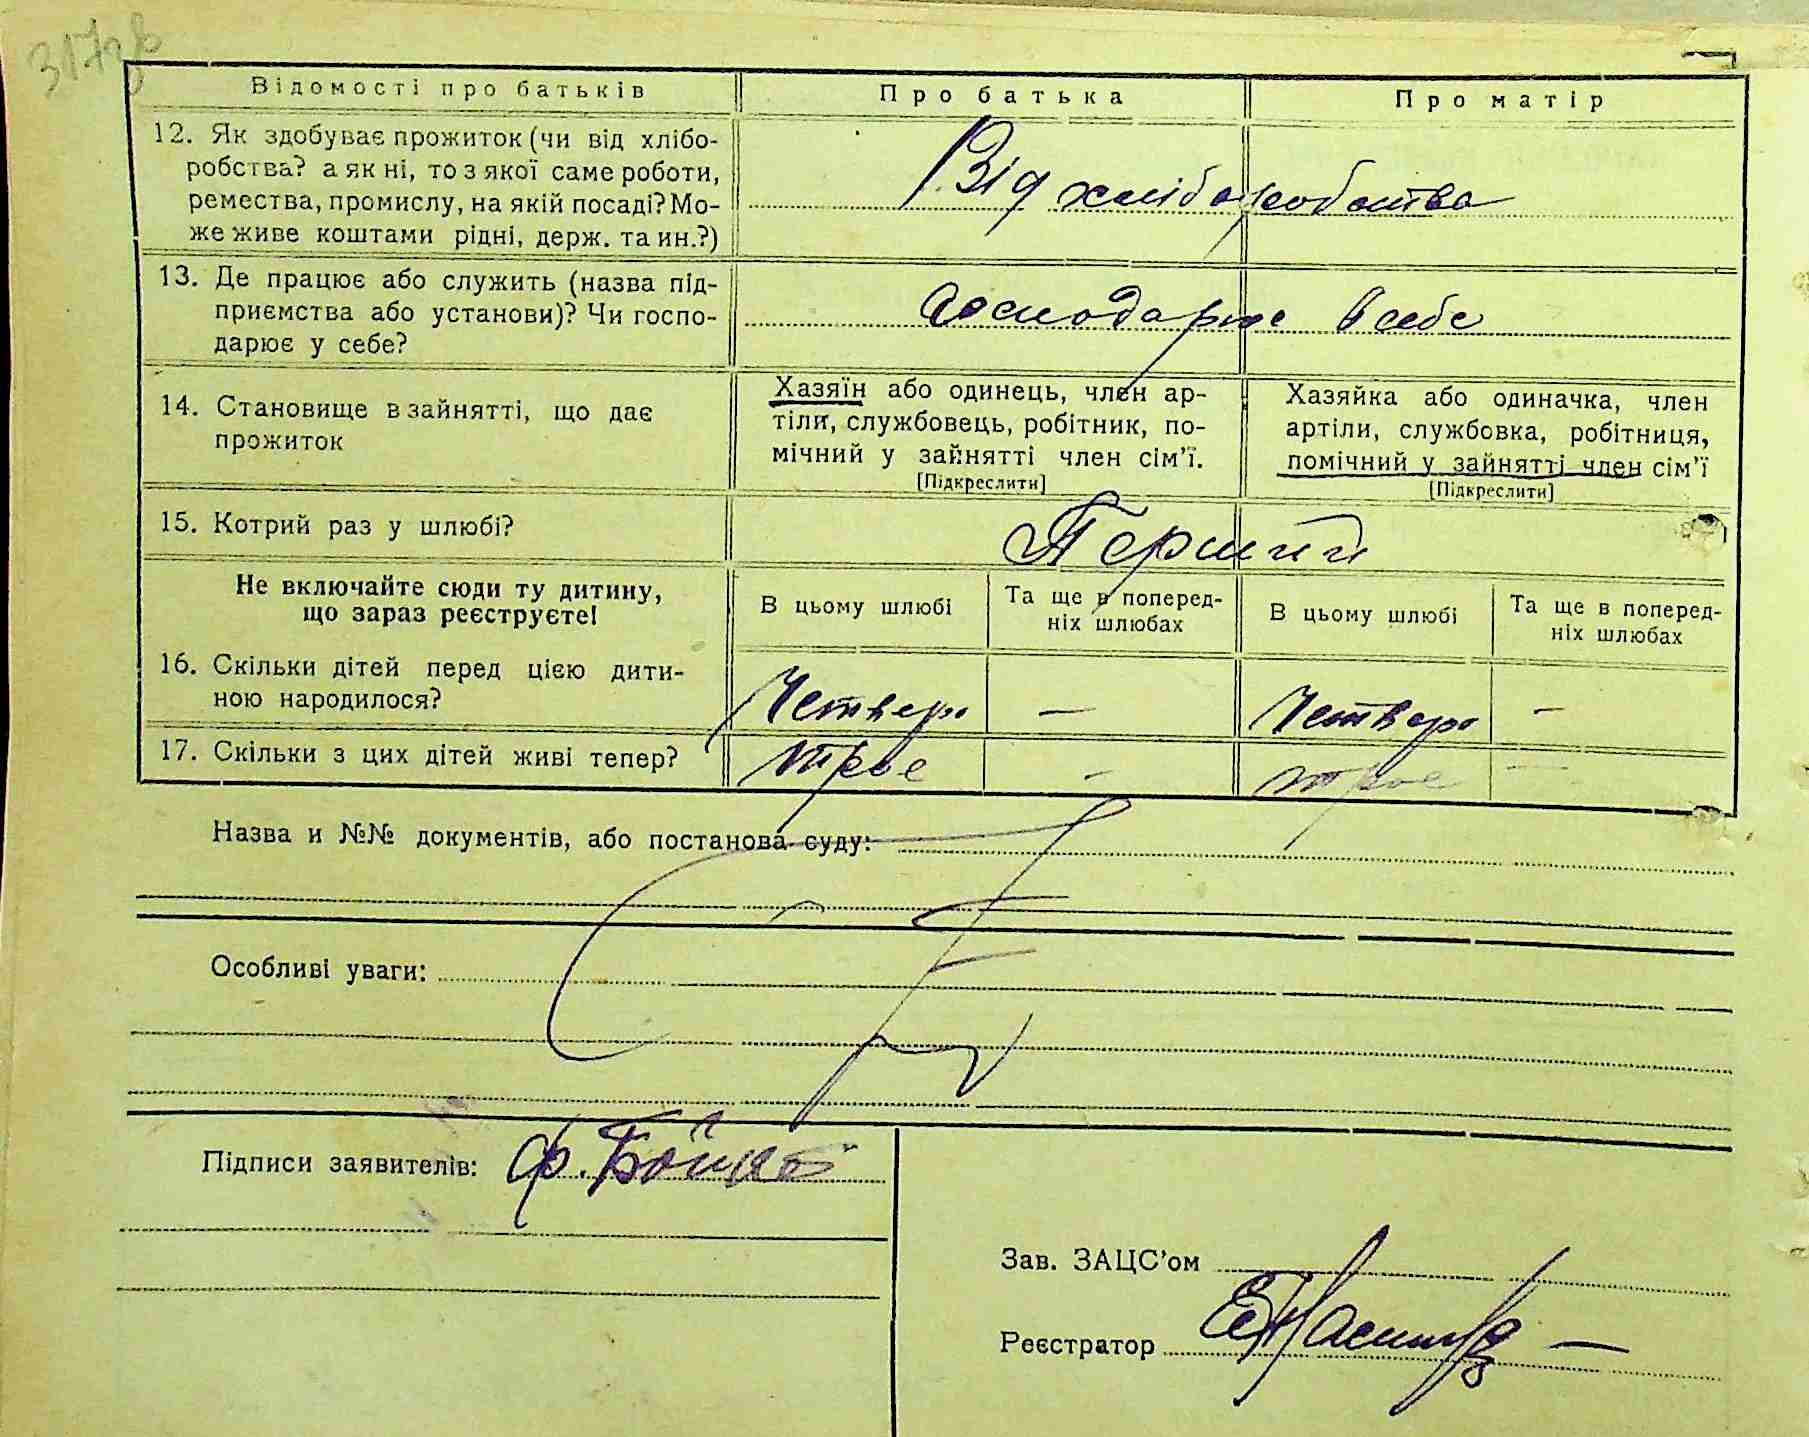 317зв
Відомості про батьків
Про батька
Про матір
12. Як здобуває прожиток (чи від хлібо-
робства? а як ні, то з якої саме роботи,
ремества, промислу, на якій посаді? Мо-
же живе коштами рідні, держ. та ин.?)
Від хліборобства
13. Де працює або служить (назва під-
приємства або установи)? Чи госпо-
дарює у себе?
Господарює в себе
14. Становище в зайнятті, що дає
прожиток
Хазяїн або одинець, член ар-
тіли, службовець, робітник, по-
мічний у зайнятті член сім’ї.
[Підкреслити]
Хазяйка або одиначка, член
артіли, службовка, робітниця,
помічний у зайнятті член сім’ї
[Підкреслити]
15. Котрий раз у шлюбі?
Перший
Не включайте сюди ту дитину,
що зараз реєструєте!
В цьому шлюбі
Та ще в поперед-
ніх шлюбах
В цьому шлюбі
Та ще в поперед-
ніх шлюбах
16. Скільки дітей перед цією дити-
ною народилося?
Четверо
—
Четверо
—
17. Скільки з цих дітей живі тепер?
трое
-
трое
—
Назва и №№ документів, або постанова суду:
Особливі уваги:
Підписи заявителів: Ф. Бойко
Зав. ЗАЦС’ом
Реєстратор